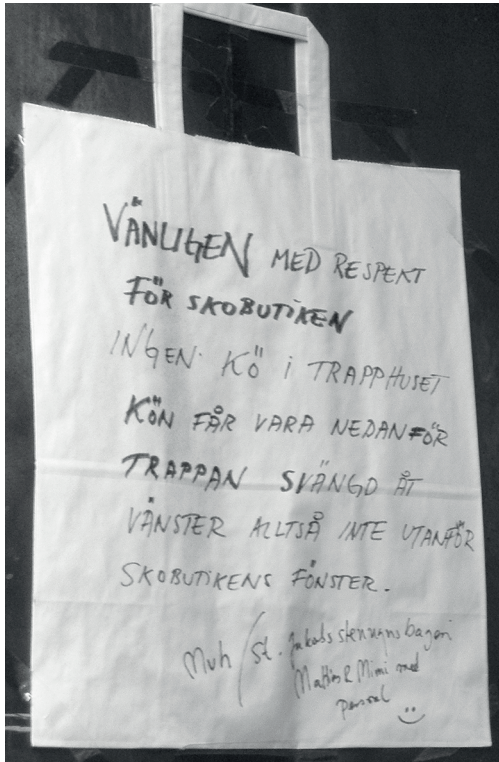 VÄNLIGEN MED RESPEKT
FÖR SKOBUTIKEN
INGEN KÖ I TRAPPHUSET
KÖN FÅR VARA NEDANFÖR
TRAPPAN SVÄNGD ÅT
VÄNSTER ALLTSÅ INTE UTANFÖR
SKOBUTIKENS FÖNSTER.
Mvh / St. Jakobs stenugnsbageri
Mattias & Mimi med
personal